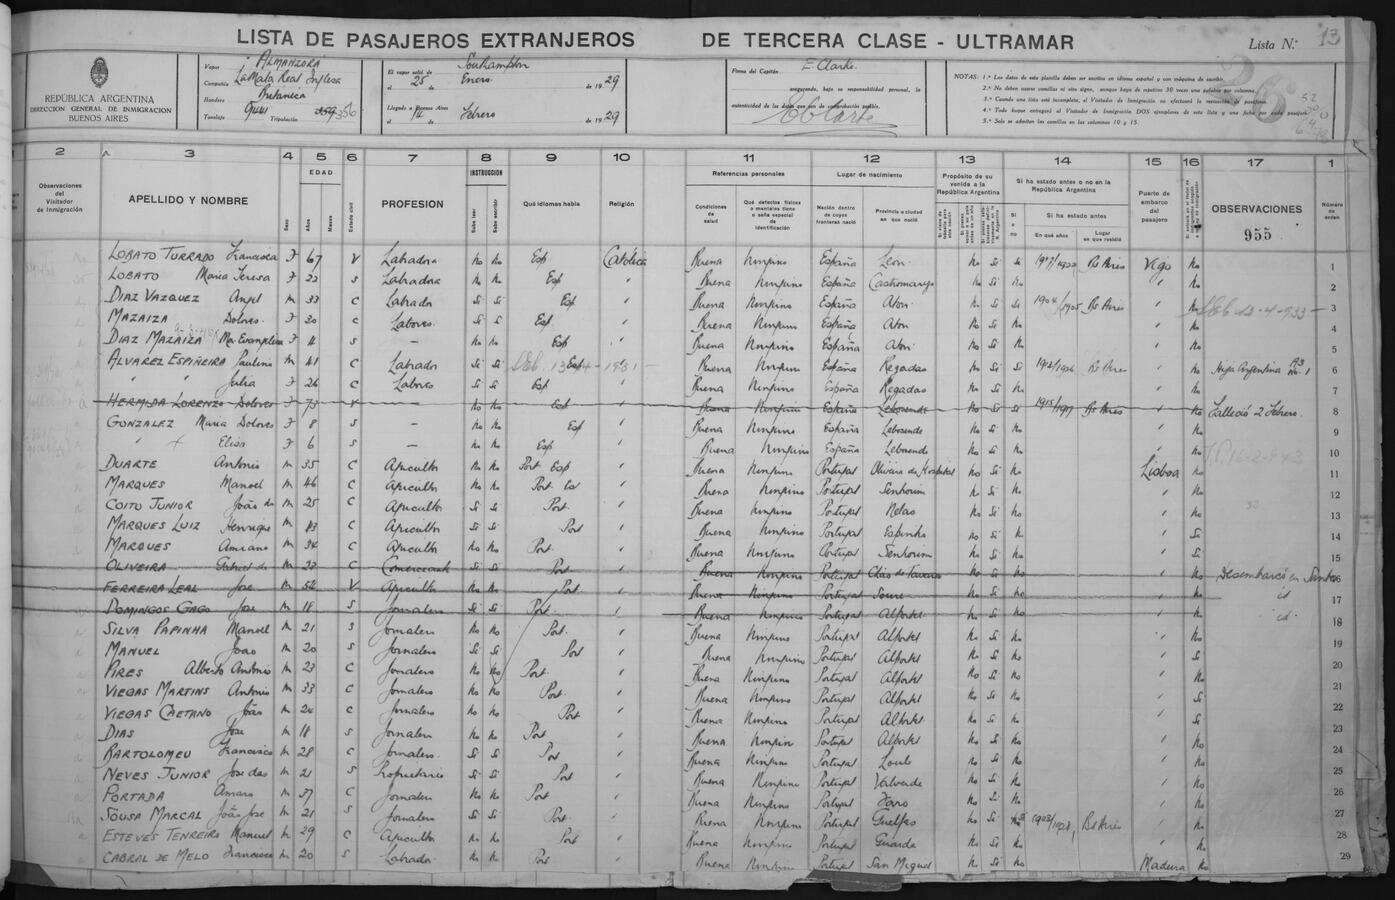 LISTA DE PASAJEROS EXTRANJEROS DE TERCERA CLASE - ULTRAMAR Lista N.° 13
REPÚBLICA ARGENTINA
DIRECCION GENERAL DE INMIGRACION
BUENOS AIRES
Vapor ALMANZORA
Compañía La Mala Real Inglesa
Bandera Britanica
Tonelaje 9441 Tripulación 356
El vapor salió de Southampton
el 25 de Enero de 1929
Llegado a Buenos Aires
el 14 de Febrero de 1929
Firma del Capitán E Clarke
asegurando, bajo su responsabilidad personal, la
autenticidad de los datos que son de comprobación posible.
NOTAS: 1.ª Los datos de esta planilla deben ser escritos en idioma español y con máquina de escribir.
2.ª No deben usarse comillas ni otro signo, aunque haya de repetirse 30 veces una palabra por columna.
3.ª Cuando una lista esté incompleta, el Visitador de Inmigración no efectuará la recepción de pasajeros.
4.ª Todo buque entregará al Visitador de Inmigración DOS ejemplares de esta lista y una ficha por cada pasajero.
5.ª Solo se admiten las comillas en las columnas 10 y 15.
2 3 4 5 6 7 8 9 10 11 12 13 14 15 16 17 1
Observaciones del Visitador de Inmigración
APELLIDO Y NOMBRE
Sexo
EDAD
Años
Meses
Estado civil
PROFESION
INSTRUCCION
Sabe leer
Sabe escribir
Qué idiomas habla
Religión
Referencias personales
Condiciones de salud
Qué defectos físicos o mentales tiene o seña especial de identificación
Lugar de nacimiento
Nación dentro de cuyas fronteras nació
Provincia o ciudad en que nació
Propósito de su venida a la República Argentina
Si ha estado antes o no en la República Argentina
Si o no
Si ha estado antes
En qué años
Lugar en que residió
Puerto de embarco del pasajero
OBSERVACIONES
955
Número de orden
LOBATO TURRADO Francisca F 67 V Labradora No No Esp Católica Buena Ninguno España Leon No Si Si 1917/1922 Bs Aires Vigo No 1
LOBATO Maria Teresa F 22 S Labradora No No Esp " Buena Ninguno España No Si No " No 2
DIAZ VAZQUEZ Angel M 33 C Labrador Si Si Esp " Buena Ninguno España No Si Si 1904/1925 Bs Aires " No 3
MAZAIZA Dolores F 30 C Labores Si Si Esp " Buena Ninguno España No Si No " No 4
DIAZ MAZAIZA Ma Evangelina F 4 S - No No Esp " Buena Ninguno España No Si No " No 5
ALVAREZ ESPIÑEIRA Paulino M 41 C Labrador Si Si Esp " Buena Ninguno España Regadas No Si Si 1912/1926 Bs Aires " No Hija Argentina 6
" " Julia F 26 C Labores Si Si Esp " Buena Ninguno España Regadas No Si No " No 7
HERMIDA LORENZO Dolores F 73 V - No No Esp " Buena Ninguno España No Si Si 1915/1917 Bs Aires " No Falleció 2 Febrero 8
GONZALEZ Maria Dolores F 8 S - No No Esp " Buena Ninguno España No Si No " No 9
" Elisa F 6 S - No No Esp " Buena Ninguno España No Si No " No 10
DUARTE Antonio M 35 C Agricultor No No Port Esp " Buena Ninguno Portugal Oliveira do Hospital No Si No Lisboa No 11
MARQUES Manoel M 46 C Agricultor No No Port " Buena Ninguno Portugal Senhorim No Si No " No 12
COITO JUNIOR João M 25 C Agricultor Si Si Port " Buena Ninguno Portugal Nelas No Si No " No 13
MARQUES LUIZ Henrique M 43 C Agricultor Si Si Port " Buena Ninguno Portugal Espinho No Si No " Si 14
MARQUES M 34 C Agricultor No No Port " Buena Ninguno Portugal Senhorim No Si No " No 15
OLIVEIRA Gabriel de M 22 C Comerciante Si Si Port " Buena Ninguno Portugal No Si No No Desembarcó en Santos 16
FERREIRA LEAL Jose M 54 V Agricultor No No Port " Buena Ninguno Portugal Soure No Si No " No id 17
DOMINGOS GAGO Jose M 18 S Jornalero Si Si Port " Buena Ninguno Portugal Alportel No Si No " No id 18
SILVA PAPINHA Manoel M 21 S Jornalero No No Port " Buena Ninguno Portugal Alportel No Si No " No 19
MANUEL Joao M 20 S Jornalero Si Si Port " Buena Ninguno Portugal Alportel No Si No " Si 20
PIRES Alberto Antonio M 23 C Jornalero No No Port " Buena Ninguno Portugal Alportel No Si No " No 21
VIEGAS MARTINS Antonio M 33 C Jornalero No No Port " Buena Ninguno Portugal Alportel No Si No " Si 22
VIEGAS CAETANO João M 24 C Jornalero No No Port " Buena Ninguno Portugal Alportel No Si No " Si 23
DIAS Jose M 18 S Jornalero No No Port " Buena Ninguno Portugal Alportel No Si No " No 24
BARTOLOMEU Francisco M 28 C Jornalero Si Si Port " Buena Ninguno Portugal Loule No Si No " No 25
NEVES JUNIOR Jose das M 21 S Propietario Si Si Port " Buena Ninguno Portugal Valverde No Si No " No 26
PORTADA Amaro M 37 C Jornalero No No Port " Buena Ninguno Portugal Faro No Si No " No 27
SOUSA MARCAL João Jose M 21 S Jornalero Si Si Port " Buena Ninguno Portugal No Si 1923/1928 Bs Aires " No 28
ESTEVES TENREIRO Manuel M 29 C Agricultor No No Port " Buena Ninguno Portugal Guarda No Si No " No 29
CABRAL DE MELO Francisco M 20 S Labrador No No Port " Buena Ninguno Portugal San Miguel No Si No Madera No